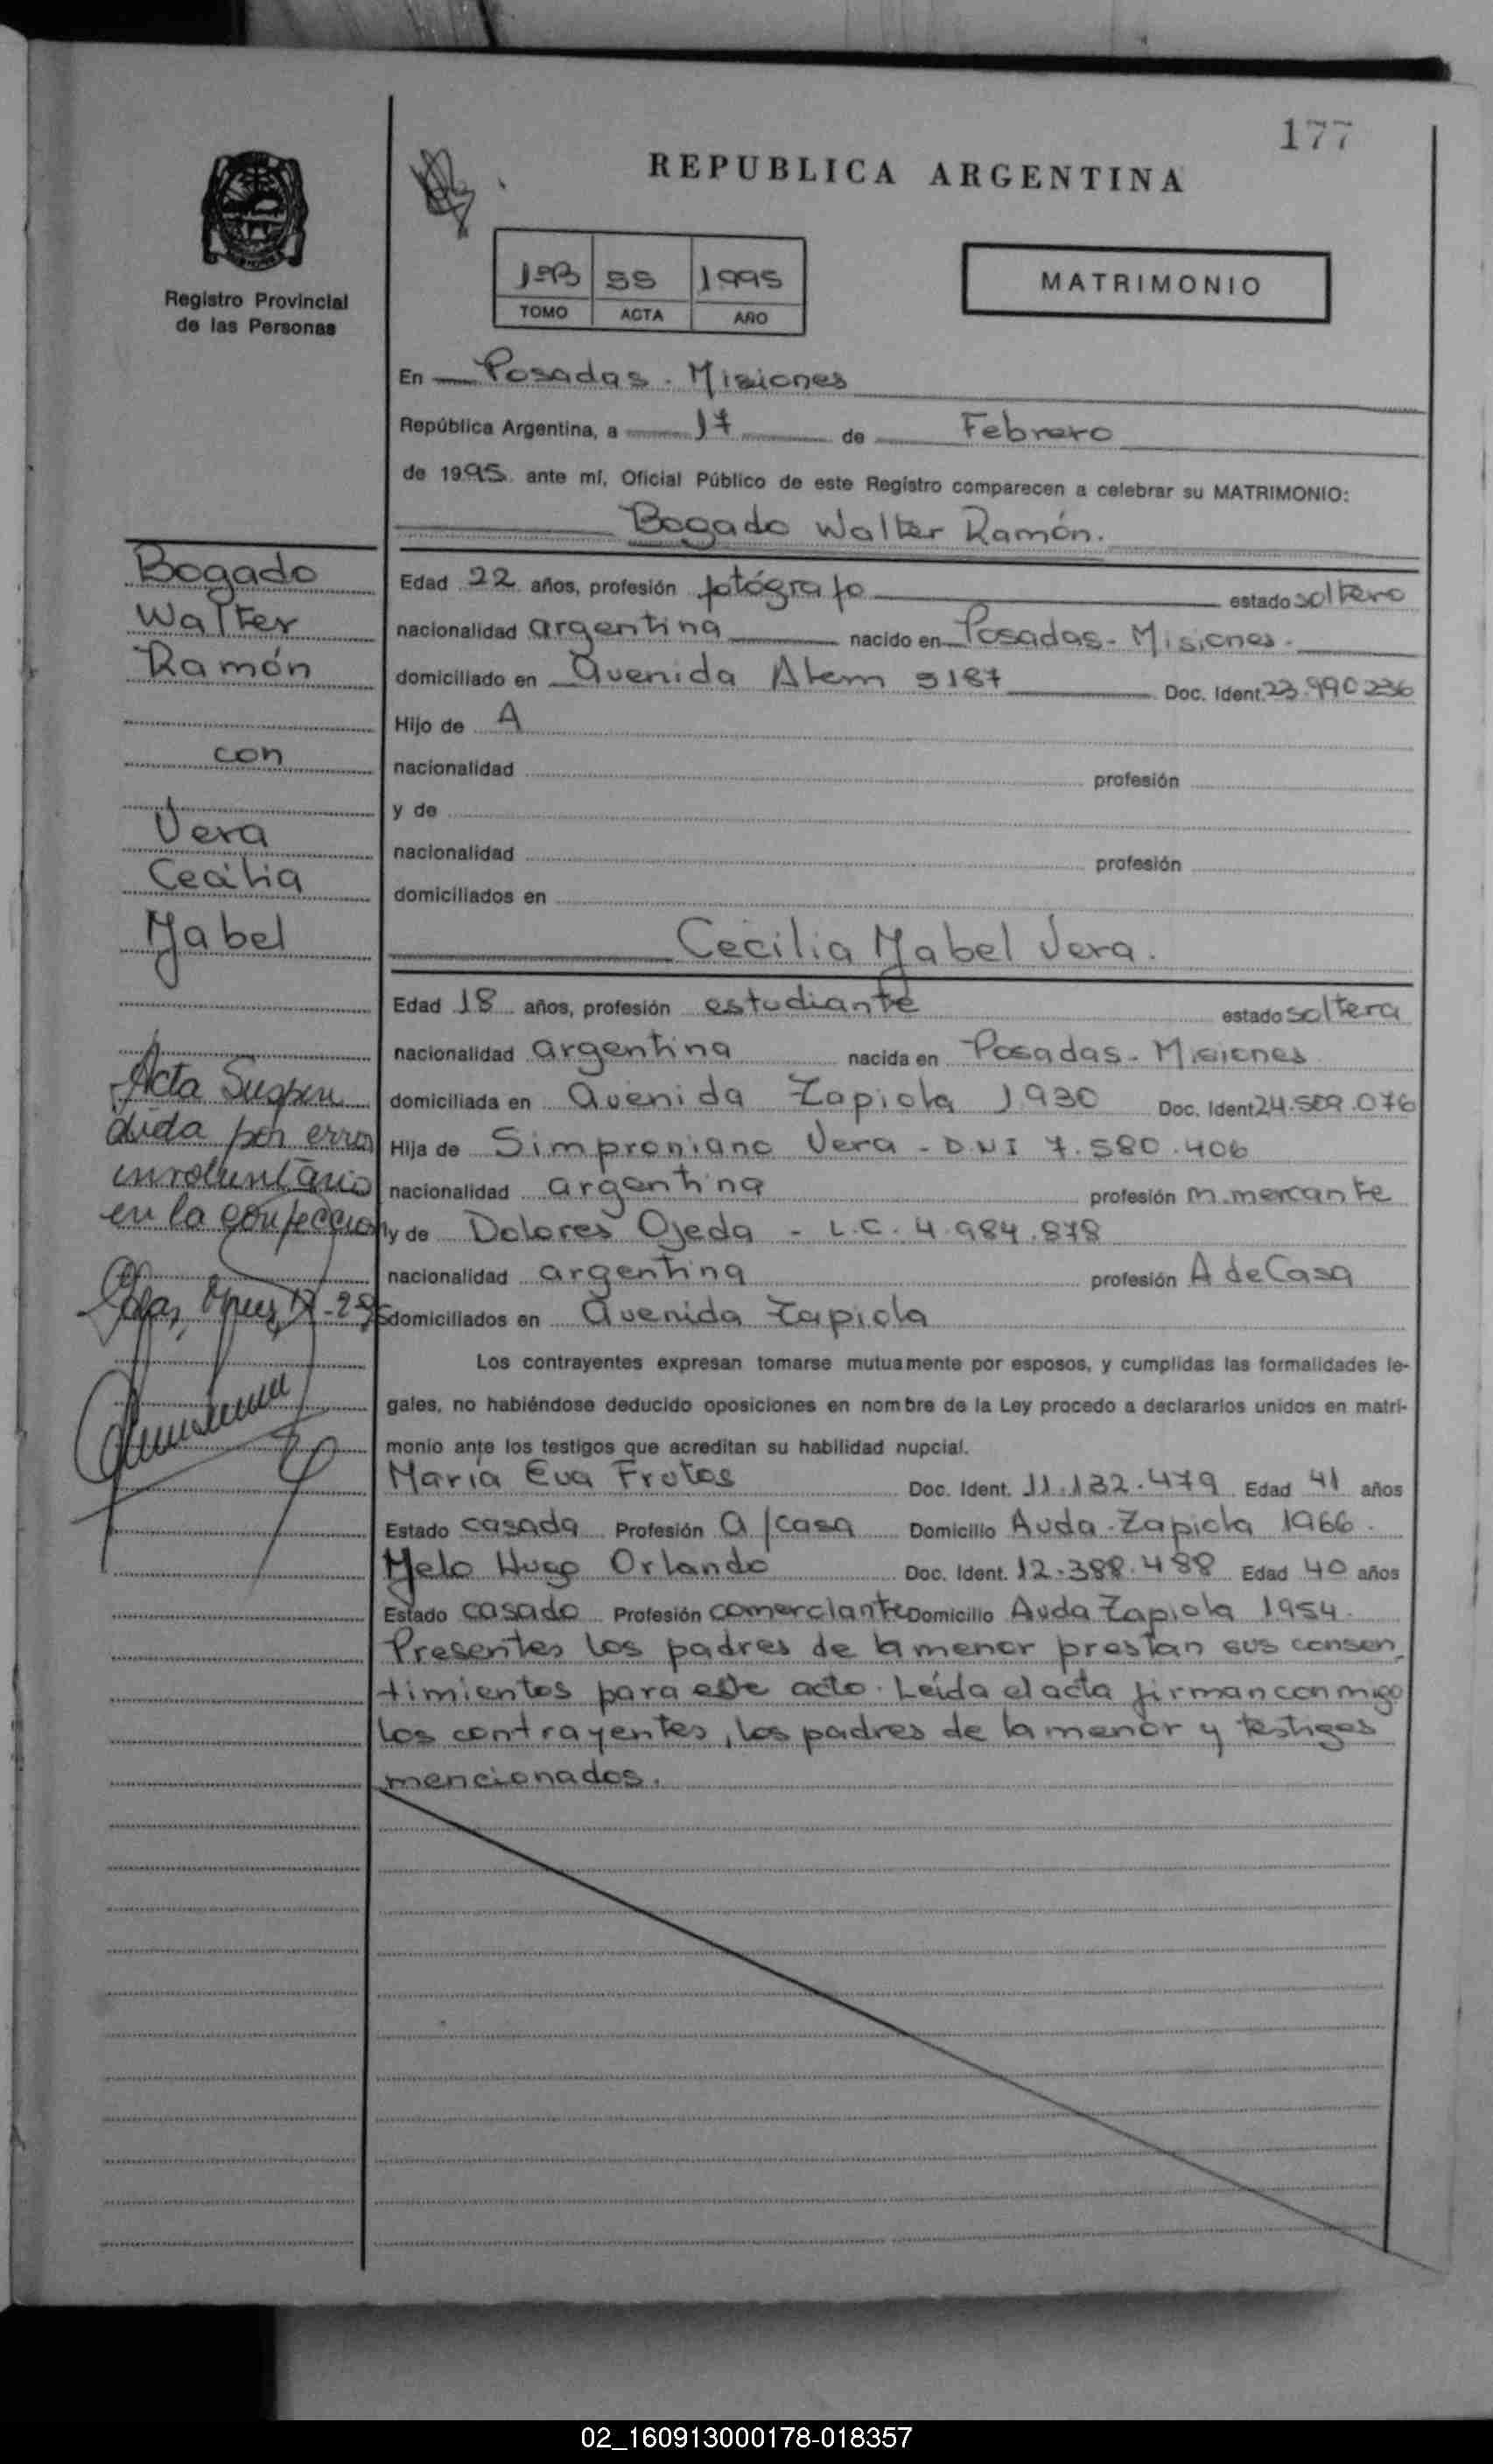 177
REPUBLICA ARGENTINA
1995
TOMO ACTA AÑO
MATRIMONIO
Registro Provincial
de las Personas
En Posadas. Misiones
República Argentina, a 17 de Febrero
de 1995 ante mí, Oficial Público de este Registro comparecen a celebrar su MATRIMONIO:
Bogado Walter Ramón.
Bogado
Walter
Ramón
con
Vera
Cecilia
Mabel
Acta Suspen
dida por error
involuntario
en la confeccion
Edad 22 años, profesión fotógrafo estado soltero
nacionalidad argentina nacido en Posadas - Misiones.
domiciliado en Avenida Alem 3187 Doc. Ident. 23.990236
Hijo de A
nacionalidad profesión
y de
nacionalidad profesión
domiciliados en
Cecilia Mabel Vera.
Edad 18 años, profesión estudiante estado soltera
nacionalidad argentina nacida en Posadas - Misiones
domiciliada en Avenida Zapiola 1930 Doc. Ident 24.509.076
Hija de Simproniano Vera - DNI 7.580.406
nacionalidad argentina profesión m.mercante
y de Dolores Ojeda - L.C. 4.984.878
nacionalidad argentina profesión A de Casa
domiciliados en Avenida Zapiola
Los contrayentes expresan tomarse mutuamente por esposos, y cumplidas las formalidades le-
gales, no habiéndose deducido oposiciones en nombre de la Ley procedo a declararlos unidos en matri-
monio ante los testigos que acreditan su habilidad nupcial.
María Eva Frutos Doc. Ident. 11.132.479 Edad 41 años
Estado casada Profesión a/casa Domicilio Avda. Zapiola 1966.
Melo Hugo Orlando Doc. Ident. 12.388.488 Edad 40 años
Estado casado Profesión comerciante Domicilio Avda Zapiola 1954.
Presentes los padres de la menor prestan sus consen
timientos para este acto. Leída el acta firman conmigo
los contrayentes, los padres de la menor y testigos
mencionados.
02_160913000178-018357